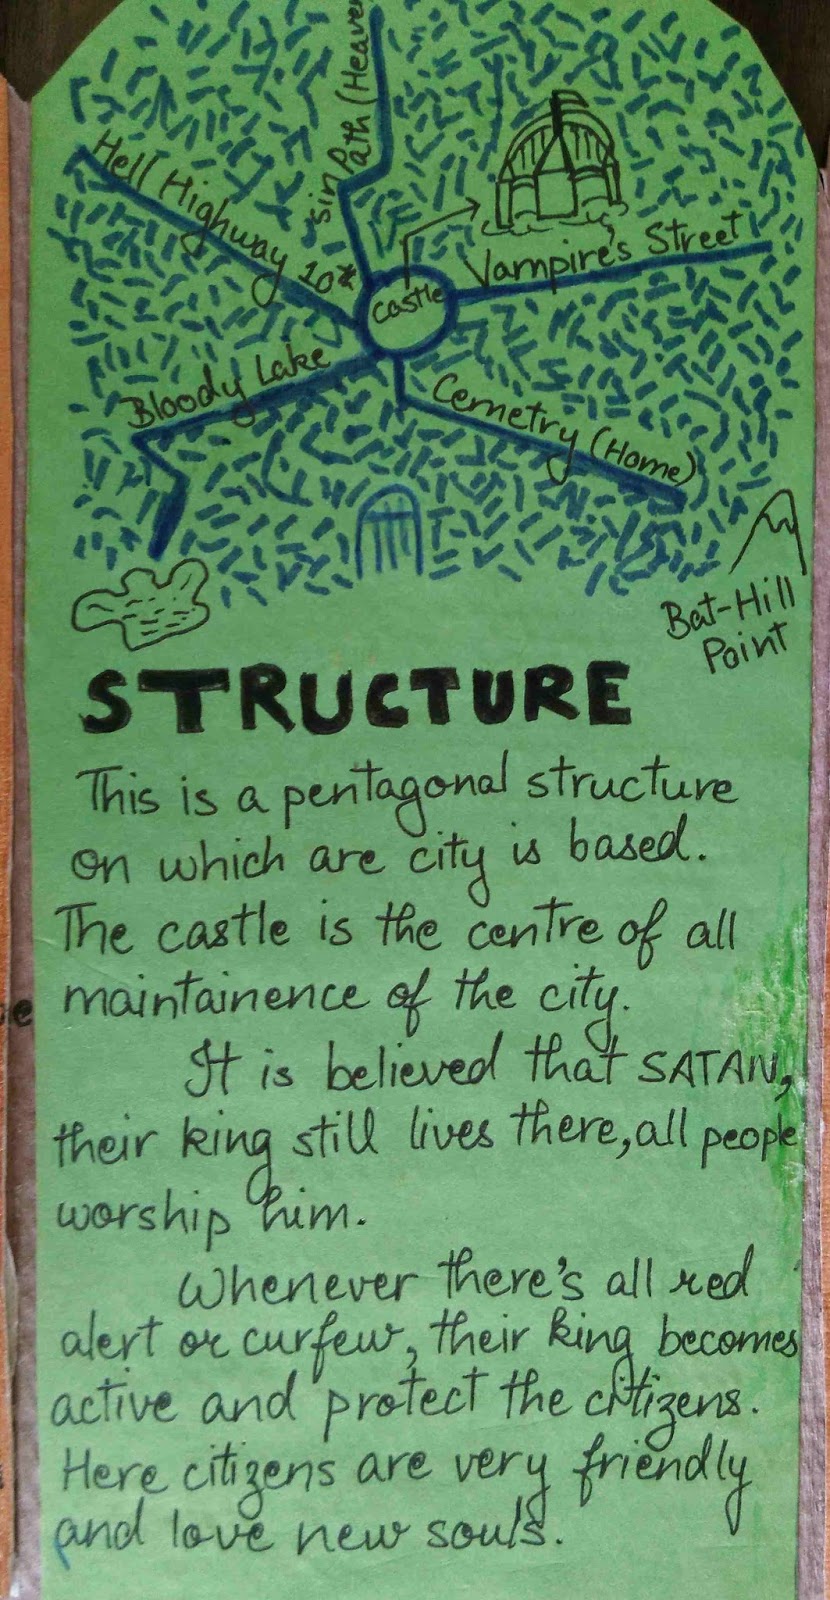 Sin Path (Heaven
Hell Highway 10
Vampire's Street
Castle
Bloody Lake
Cemetry (Home)
Bat-Hill
Point
STRUCTURE
This is a pentagonal structure
on which are city is based.
The castle is the centre of all
maintainence of the city.
It is believed that SATAN,
their king still lives there, all people
worship him.
Whenever there's all red
alert or curfew, their king becomes
active and protect the citizens.
Here citizens are very friendly
and love new souls.